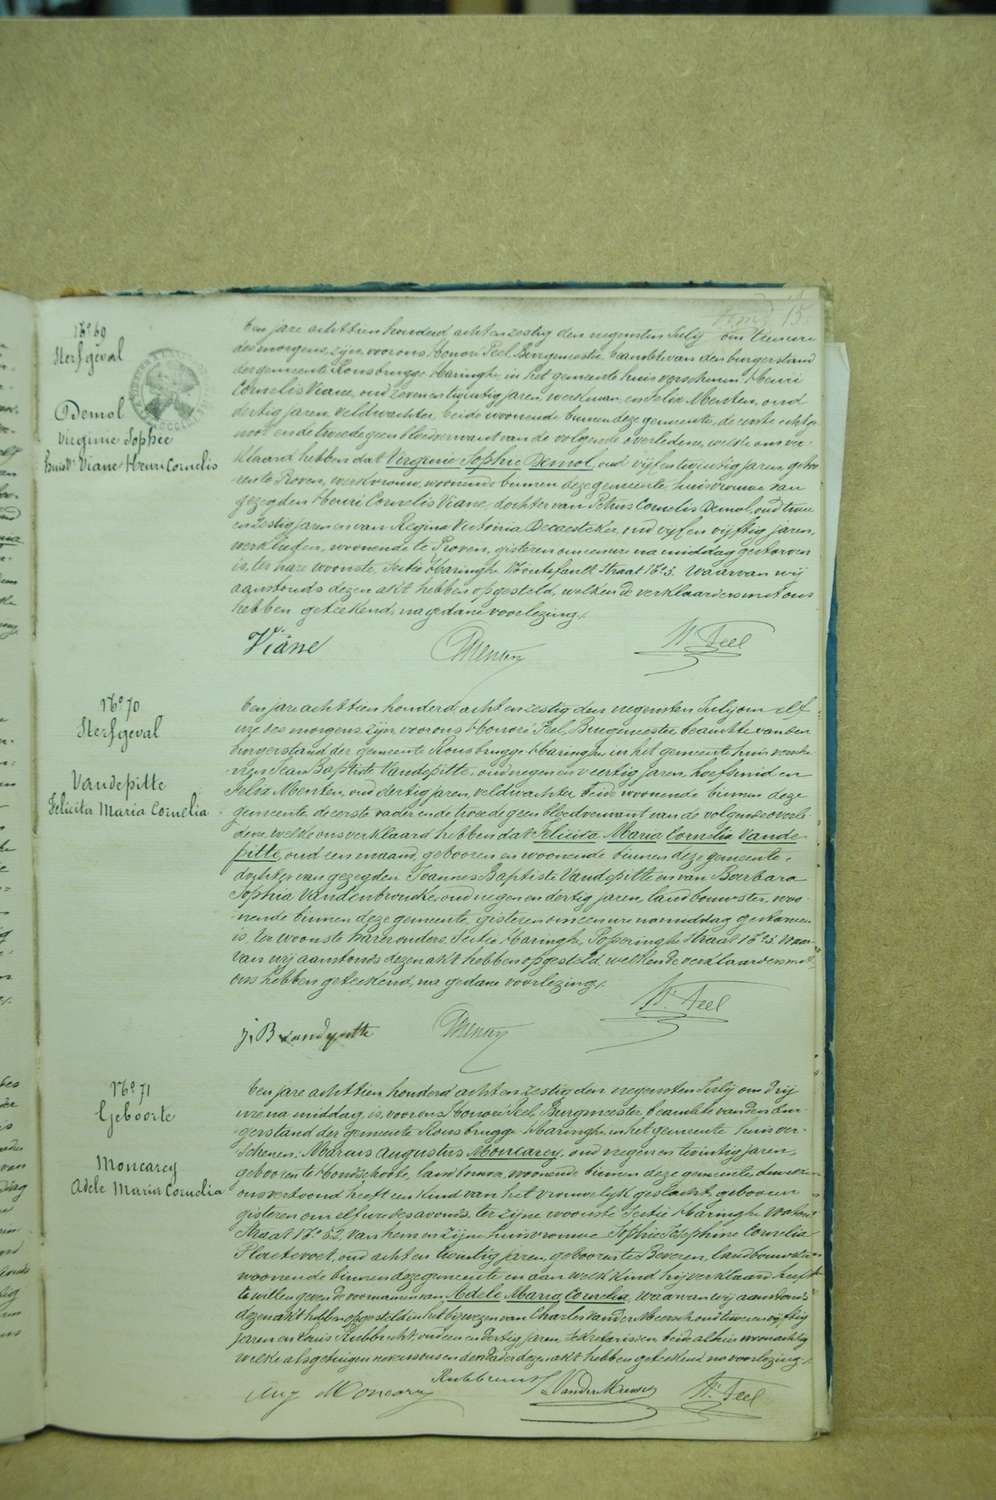 15
N° 69
Sterfgeval
Demol
Virginie Sophie
huisv. Viane Henri Cornelis
Een jare achttien honderd acht en zestig den negensten July om tien ure
des morgens, zijn voor ons Honoré Peel, Burgmeester, beambte van den burgerstand
der gemeente Ronsbrugge-Haringhe, in het gemeente huis verschenen Henri
Cornelis Viane, oud zeven en twintig jaren, werkman, en Felix Menten, oud
dertig jaren, veldwachter, beide woonende binnen deze gemeente, de eerste echtge-
noot en de tweede geen bloedverwant van de volgende overledene, welke ons ver-
klaard hebben dat Virginie Sophie Demol, oud vijf en twintig jaren, geboo-
ren te Proven, werkvrouw, woonende binnen deze gemeente, huisvrouwe van
gezegden Henri Cornelis Viane, dochter van Petrus Cornelis Demol, oud twee
en zestig jaren en van Regina Victoria Decaesteker, oud vijf en vijftig jaren,
werklieden, woonende te Proven, gisteren om eene ure na middag gestorven
is, ter hare woonste, Sectie Haringhe, straat N° 3. Waarvan wij
aanstonds dezen akt hebben opgesteld, welken de verklaarders met ons
hebben geteekend, na gedane voorlezing.
Viâne Menten H. Peel
N° 70
Sterfgeval
Vandepitte
Felicita Maria Cornelia
Een jare achttien honderd acht en zestig den negensten July om elf
ure des morgens zijn voor ons Honoré Peel, Burgmeester beambte van den
burgerstand der gemeente Ronsbrugge-Haringhe in het gemeente huis versche-
nen Jean Baptiste Vandepitte, oud negen en veertig jaren, hoefsmid en
Felix Menten, oud dertig jaren, veldwachter beide woonende binnen deze
gemeente de eerste vader en de tweede geen bloedverwant van de volgende overle-
dene welke ons verklaard hebben dat Felicita Maria Cornelia Vande-
pitte, oud een maand, gebooren en woonende binnen deze gemeente,
dochter van gezegden Joannes Baptiste Vandepitte en van Barbara
Sophia Vandenbroucke, oud negen en dertig jaren, landbouwster, woo-
nende binnen deze gemeente, gisteren om eene ure namiddag gestorven
is, ter woonste harer ouders Sectie Haringhe, Poperinghe straat N° 3. Waar-
van wij aanstonds dezen akt hebben opgesteld, welken de verklaarders met
ons hebben geteekend, na gedane voorlezing.
J, B Vandepitte Menten H. Peel
N° 71
Geboorte
Moncarey
Adele Maria Cornelia
Een jare achttien honderd acht en zestig den negensten July om drij
ure na middag, is, voor ons Honoré Peel, Burgmeester, beambte van den bur-
gerstand der gemeente Ronsbrugge-Haringhe, in het gemeente huis ver-
schenen: Marcus Augustus Moncarey, oud negen en twintig jaren,
gebooren te Hondschoote, landbouwer, woonende binnen deze gemeente, dewelken
ons vertoond heeft een kind van het vrouwelijk geslacht, gebooren
gisteren om elf ure des avonds, ter zijne woonste Sectie Haringhe
straat N° 52, van hem en zijne huisvrouwe Sophie Josephine Cornelia
Ploetevoet, oud acht en twintig jaren, gebooren te Beveren, landbouwster
woonende binnen deze gemeente en aan welk kind hij verklaard heeft
te willen geven de voornamen van Adele Maria Cornelia, waarvan wij aanstonds
dezen akt hebben opgesteld in het bijwezen van Charles Vander Meersch oud twee en vijftig
jaren en Louis Rubbrecht, oud een en dertig jaren, sekretarissen beide alhier woonachtig
welke als getuigen nevens ons en den vader dezen akt hebben geteekend na voorlezing.
Aug Moncarey Rubbrecht VanderMeersch H. Peel